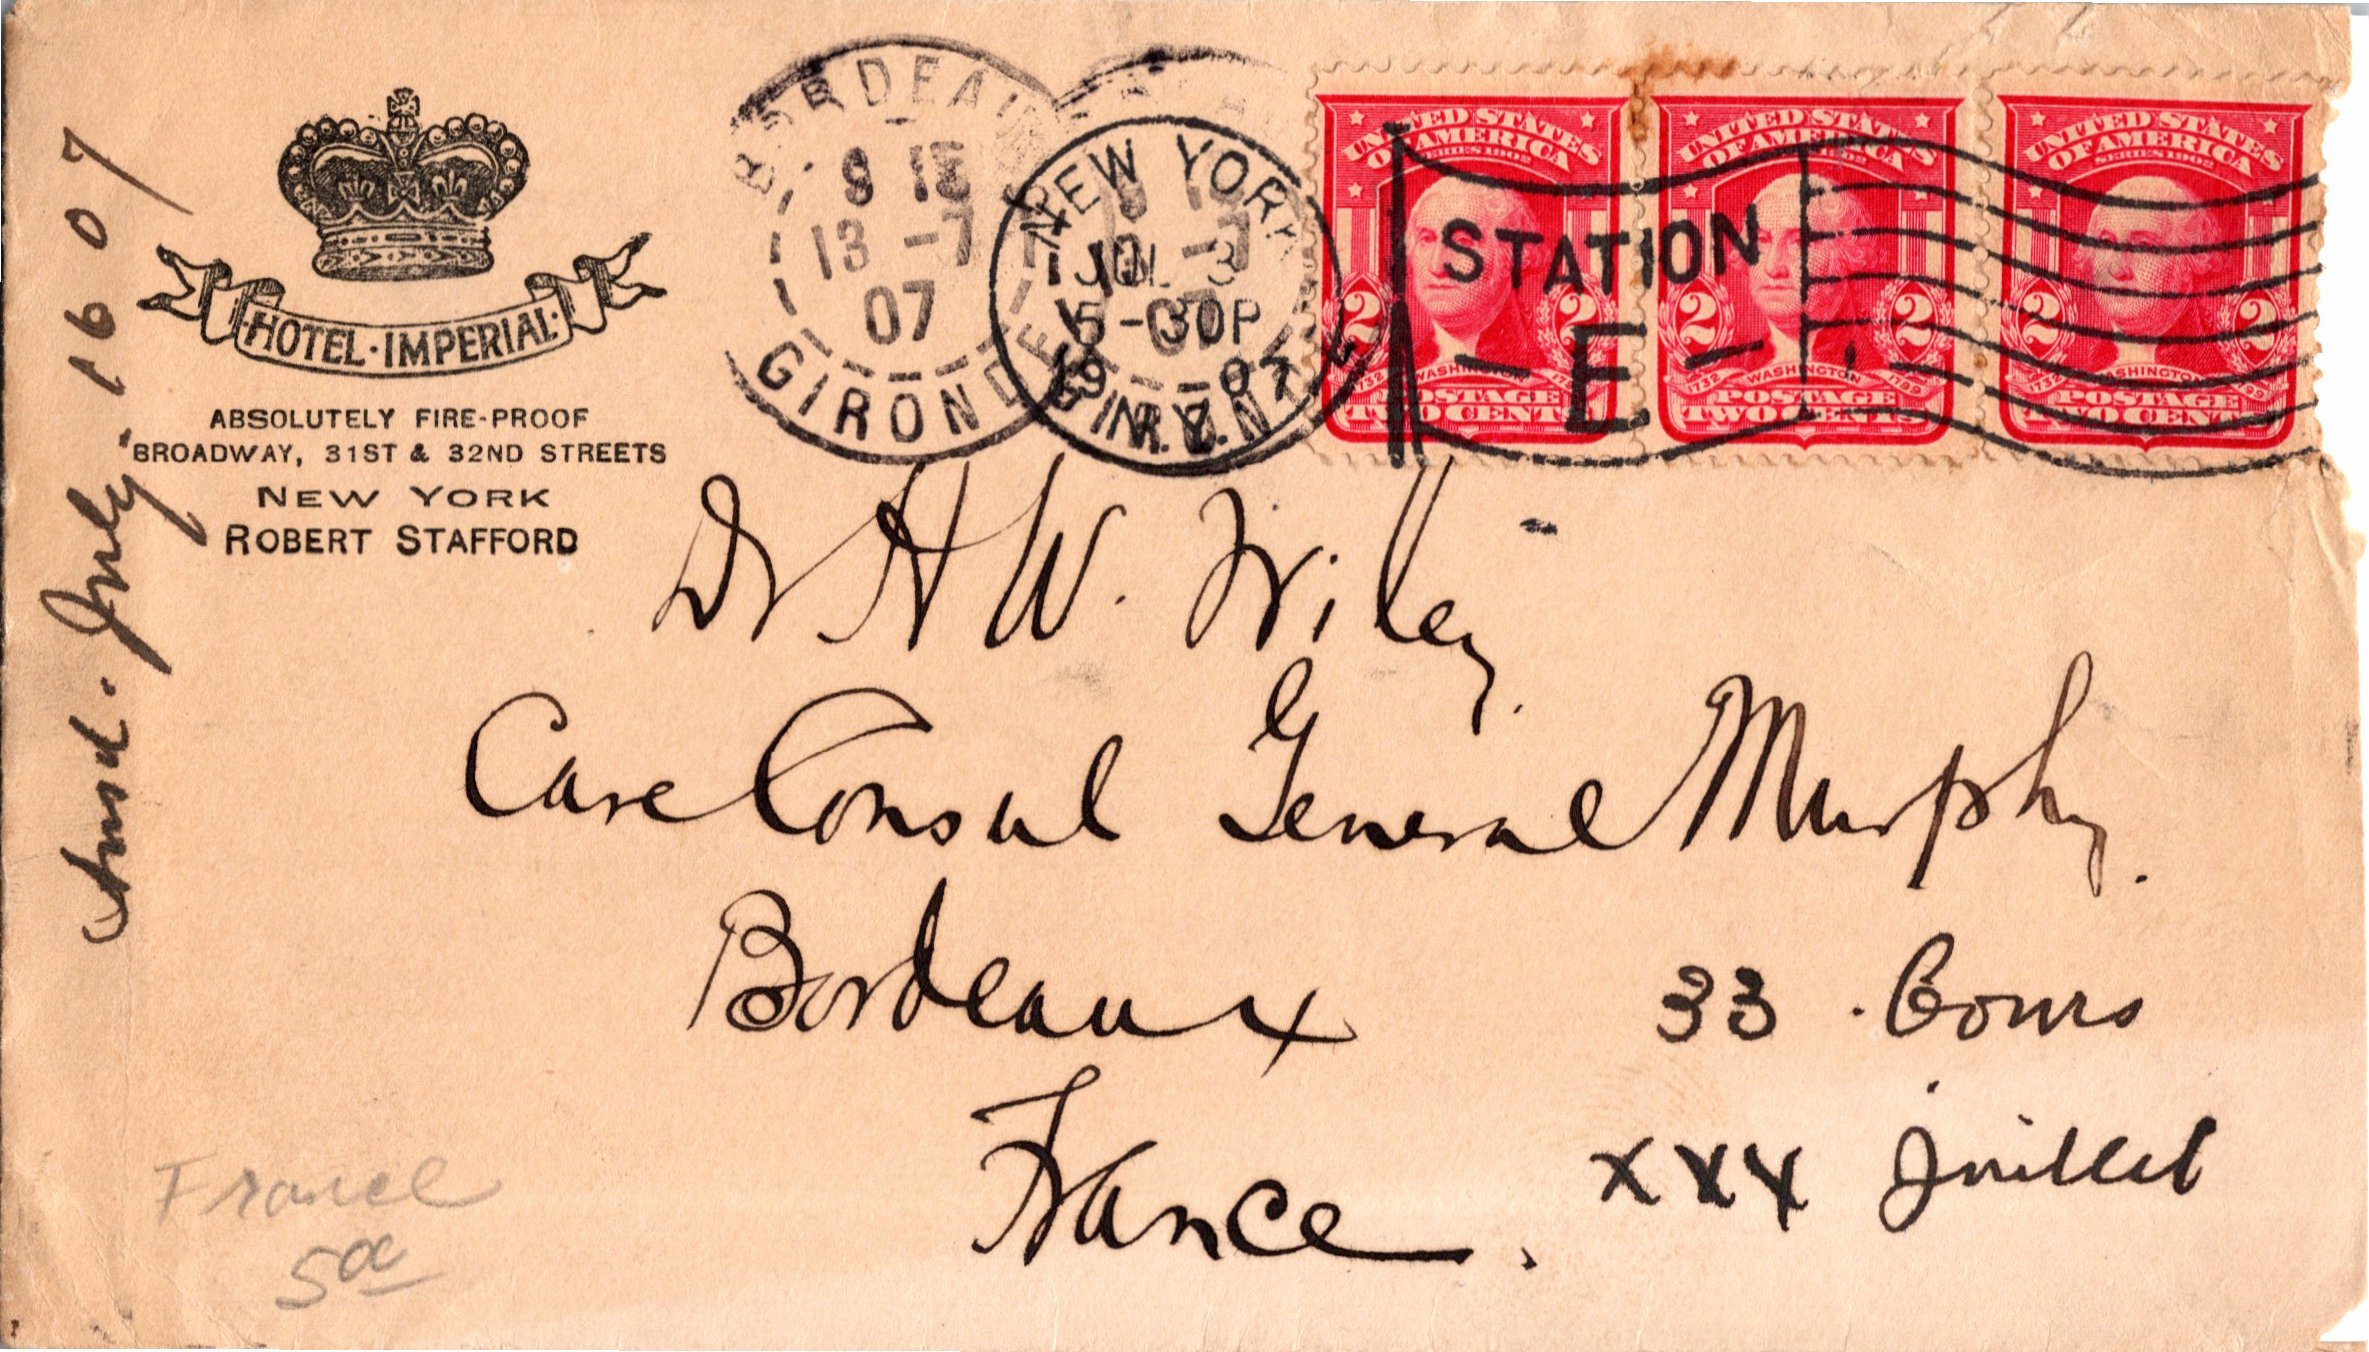 HOTEL · IMPERIAL
ABSOLUTELY FIRE-PROOF
BROADWAY, 31ST & 32ND STREETS
NEW YORK
ROBERT STAFFORD
July 16 07
BORDEAUX
13 -7
07
GIRONDE
NEW YORK
JUL 3
5-30P
1907
N.Y.
STATION
- E -
UNITED STATES
OF AMERICA
SERIES 1902
2 2
1732 WASHINGTON
POSTAGE
TWO CENTS
UNITED STATES
OF AMERICA
1902
2 2
1732 WASHINGTON 1799
POSTAGE
TWO CENTS
UNITED STATES
OF AMERICA
SERIES 1902
2 2
1732 WASHINGTON 1799
POSTAGE
TWO CENTS
Dr H W. Wiley.
Care Consul General Murphy.
Bordeaux
France.
33 . Cours
XXX Juillet
France